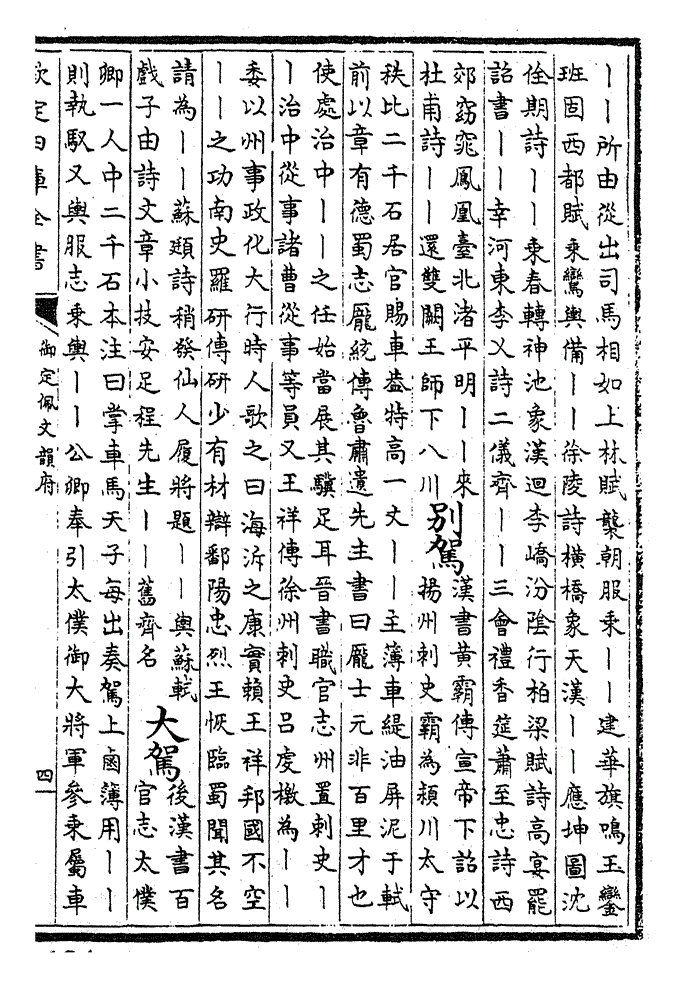 ｜｜所由從出司馬相如上林賦襲朝服乘｜｜建華旗鳴玉鑾
班固西都賦乘鸞輿備｜｜徐陵詩横橋象天漢｜｜應坤圖沈
佺期詩｜｜乘春轉神池象漢迴李嶠汾陰行柏梁賦詩高宴罷
詔書｜｜幸河東李乂詩二儀齊｜｜三會禮香筵蕭至忠詩西
郊窈窕鳳凰臺北渚平明｜｜來
杜甫詩｜｜還雙闕王師下八川
别駕
漢書黄霸傳宣帝下詔以
揚州刺史霸為潁川太守
秩比二千石居官賜車葢特高一丈｜｜主簿車緹油屏泥于軾
前以章有德蜀志龐統傳魯肅遺先主書曰龐士元非百里才也
使處治中｜｜之任始當展其驥足耳晉書職官志州置刺史｜
｜治中從事諸曹從事等員又王祥傳徐州刺史吕虔檄為｜｜
委以州事政化大行時人歌之曰海沂之康實賴王祥邦國不空
｜｜之功南史羅研傳研少有材辯鄱陽忠烈王恢臨蜀聞其名
請為｜｜蘇頲詩稍發仙人履將題｜｜輿蘇軾
戲子由詩文章小技安足程先生｜｜舊齊名
大駕
後漢書百
官志太僕
卿一人中二千石本注曰掌車馬天子每出奏駕上鹵簿用｜｜
則執馭又輿服志乘輿｜｜公卿奉引太僕御大將軍參乘屬車
欽定四庫全書
御定佩文韻府
四